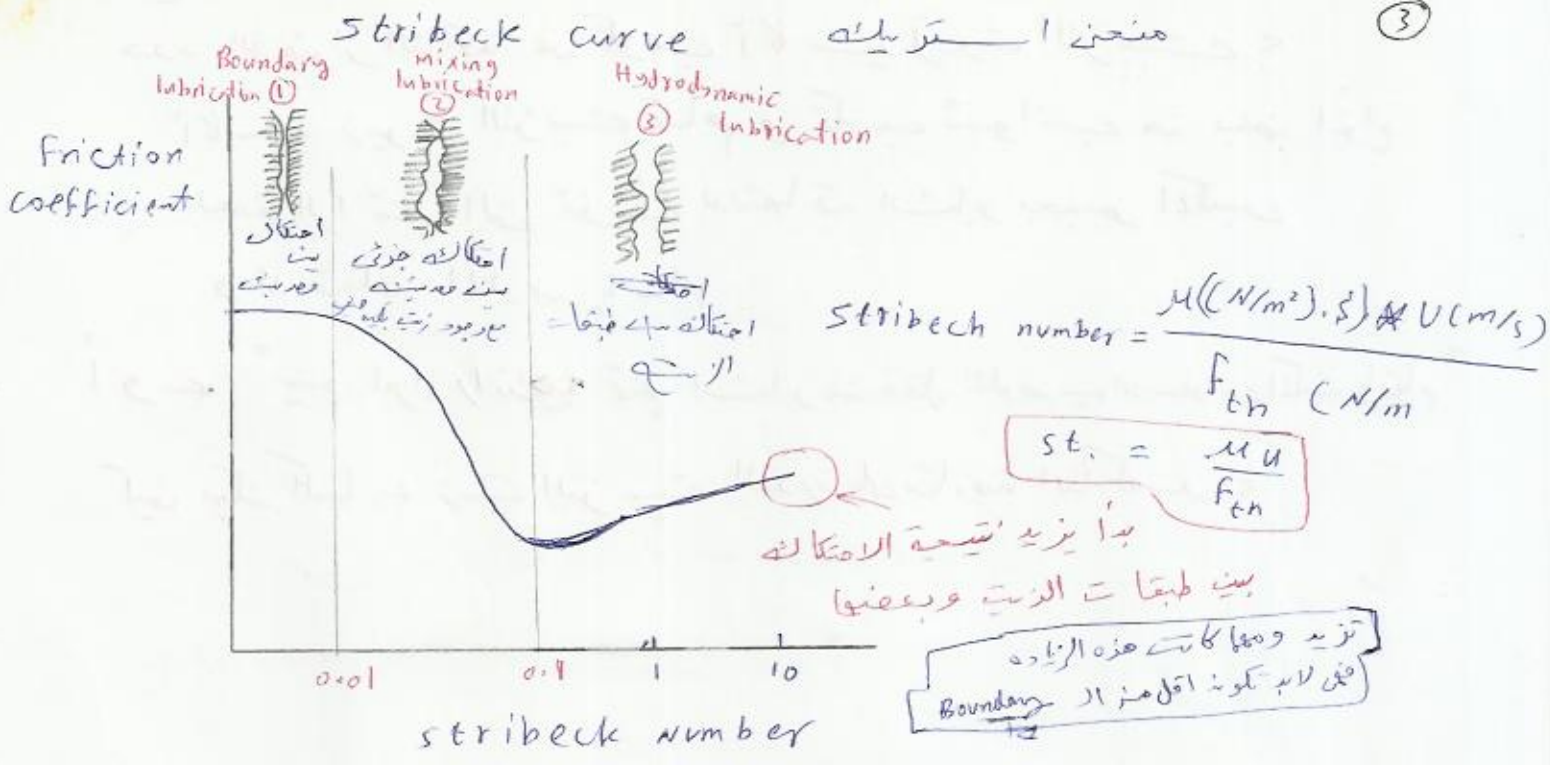 ③
Stribeck curve منحنى استريبك
Boundary
lubrication ①
mixing
lubrication
②
Hydrodynamic
③ lubrication
Friction
coefficient
احتكاك
بين
احتكاك جزئى
بين
مع وجود زيت
احتكاك بين طبقات
الزيت
Stribech number = μ((N/m²).S) * U(m/s)
F_th (N/m
St. = μu / F_th
بدأ يزيد نتيجة الاحتكاك
بين طبقات الزيت وبعضها
تزيد ومهما كانت هذه الزياده
فهى لابد تكون اقل من الـ Boundary
0.01 1 10
Stribeck Number